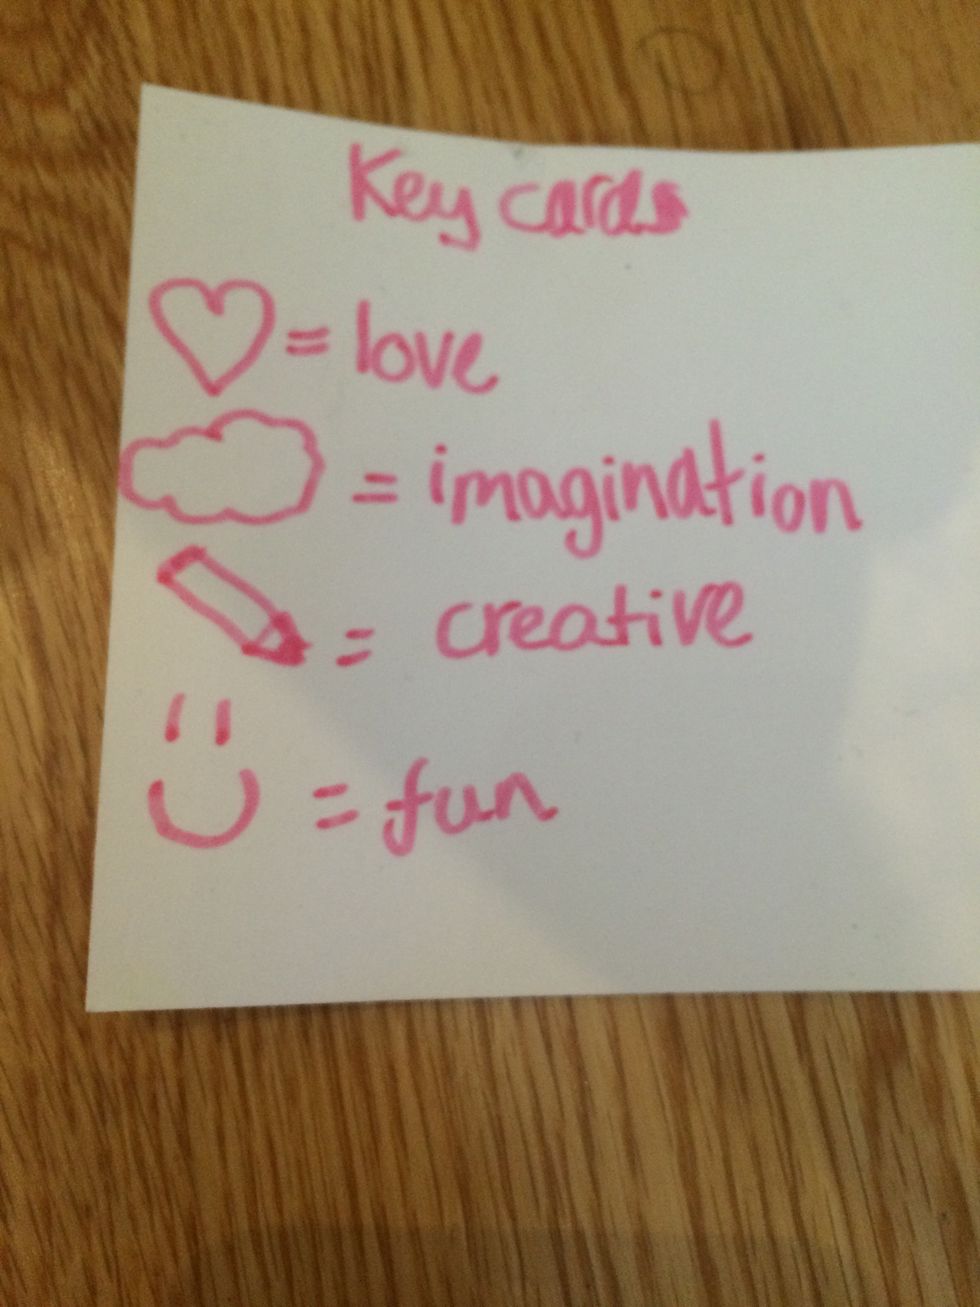 Key cards
= love
= imagination
= creative
= fun